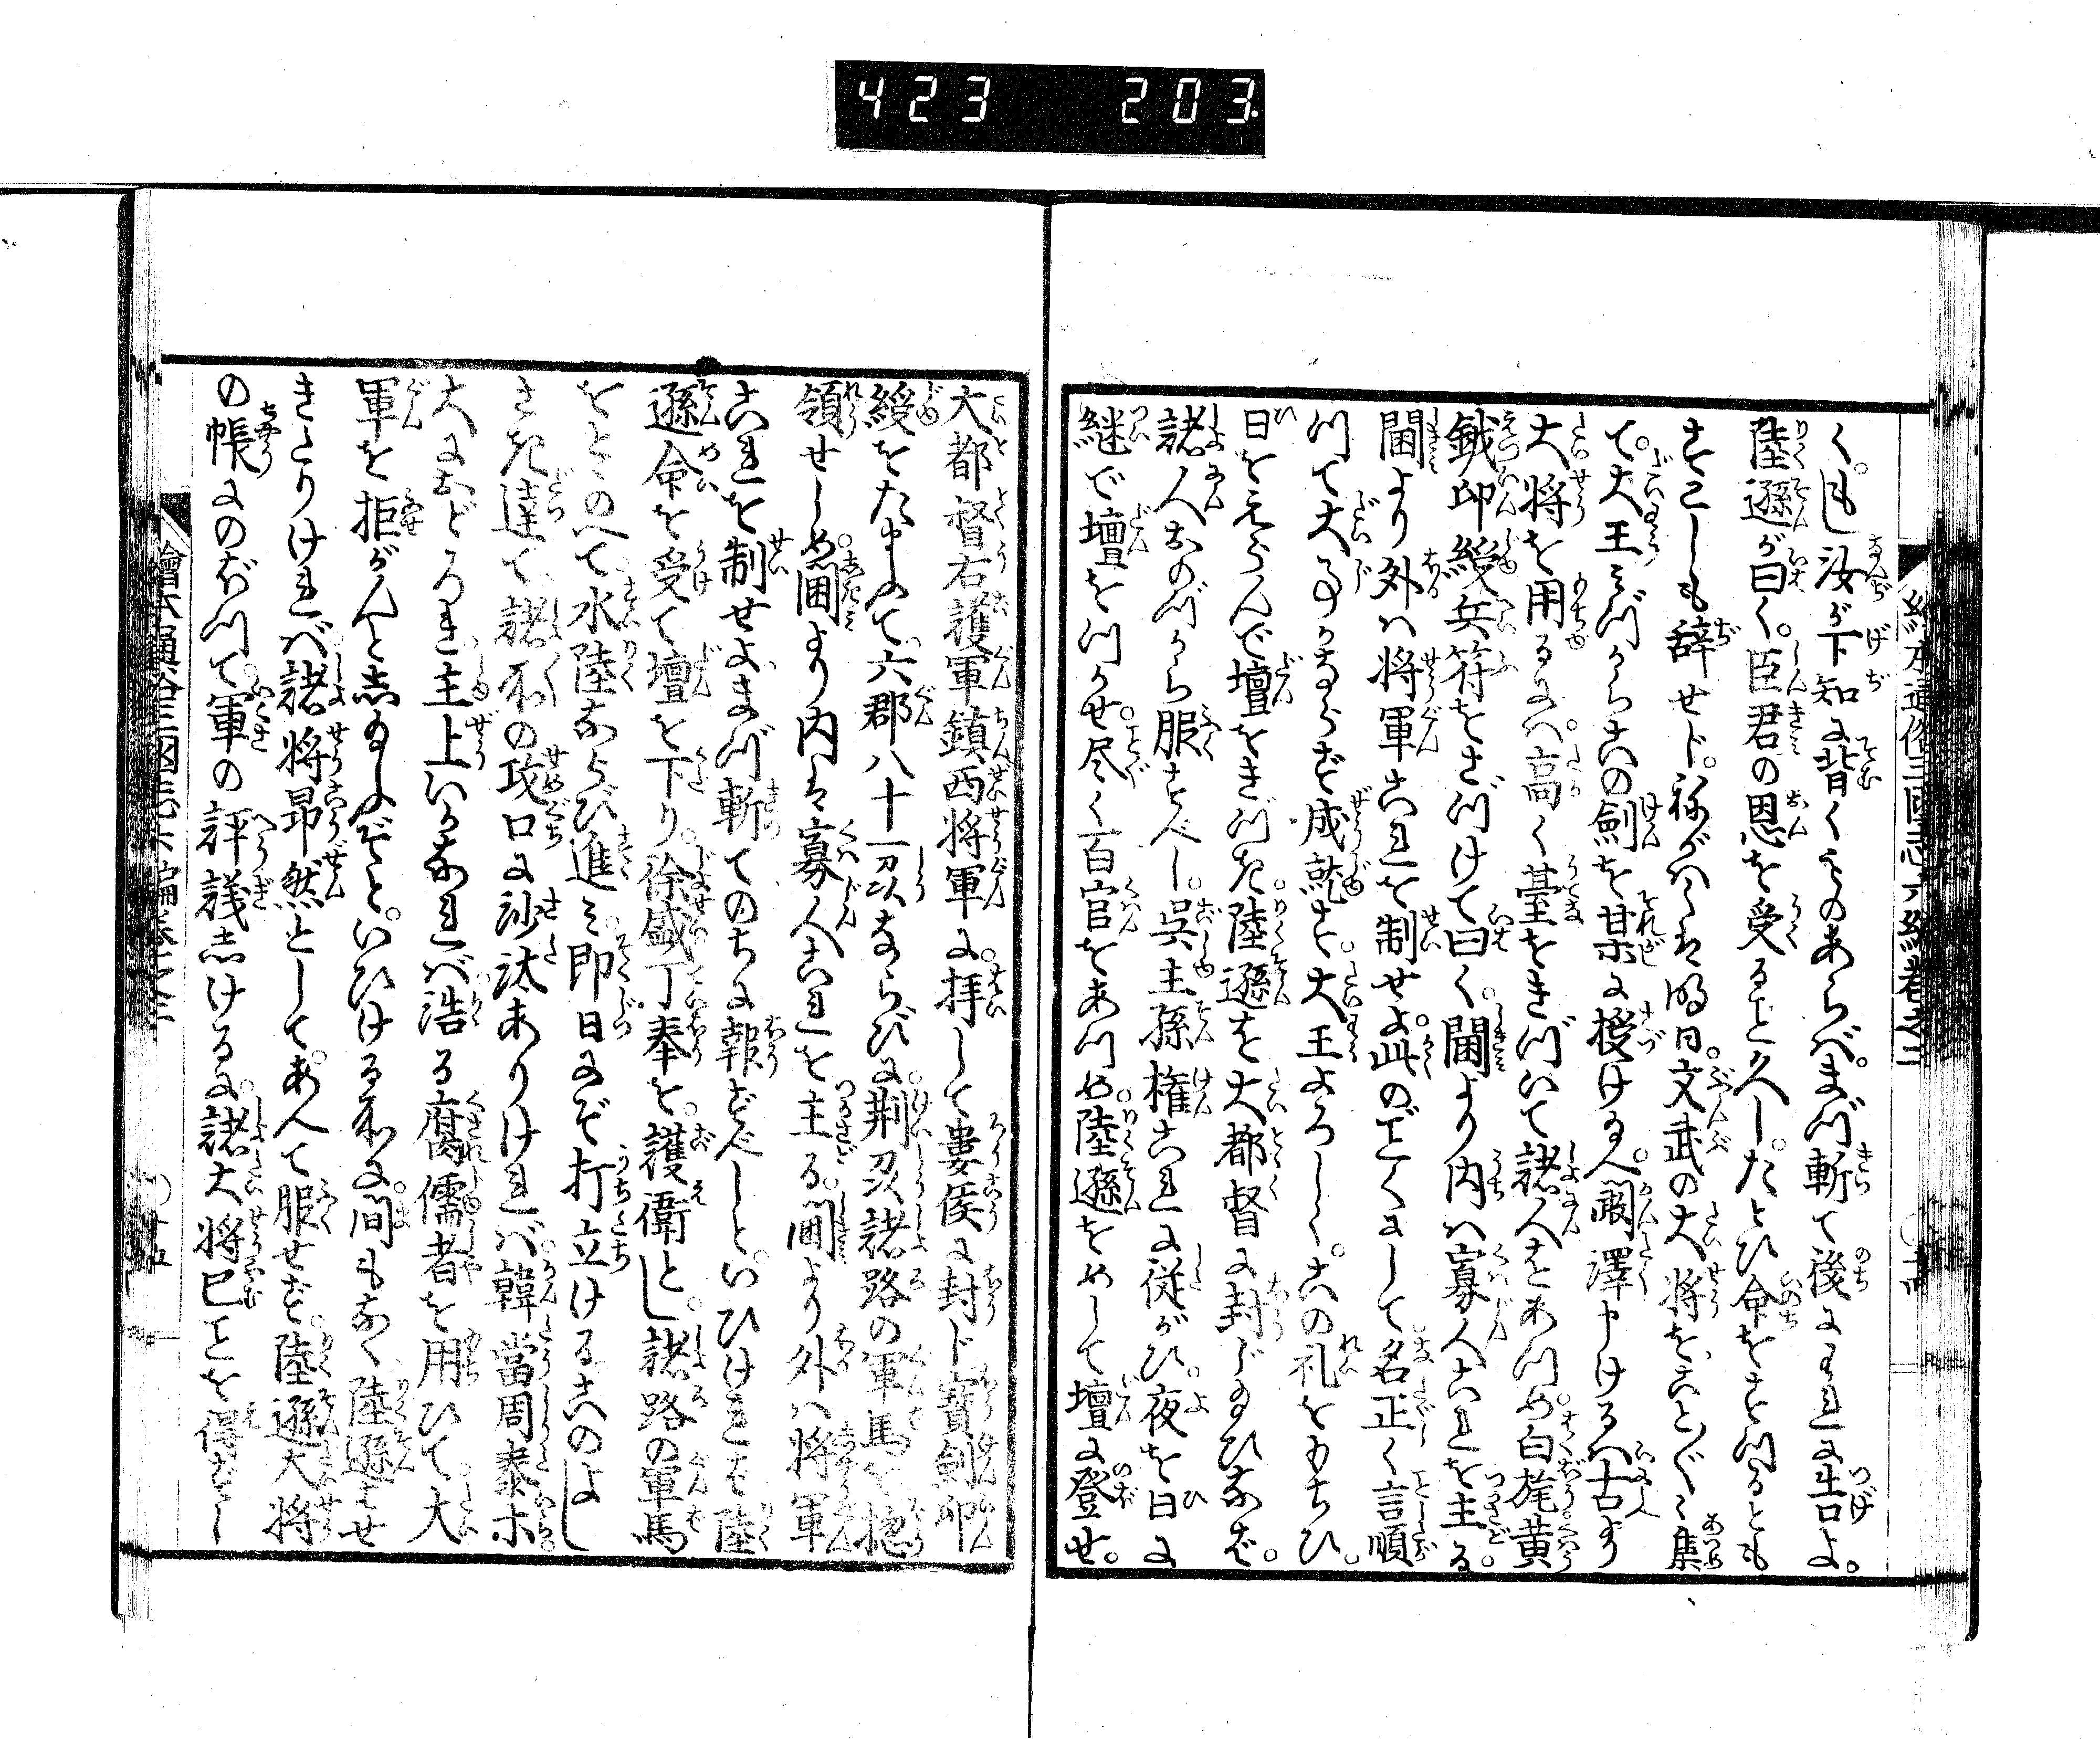 423 203
く。もし汝が下知に背くものあらバ。まづ斬て後にわれに告よ。
陸遜が曰く。臣君の恩を受ること久し。たとひ命をすつるとも
すこしも辞せじ。ねがハくは明日。文武の大将をことぐく集
て。大王みづからこの剣を某に授け給へ。闞澤申けるハ古より
大将を用るにハ。高く臺をきづいて諸人をあつめ。白旄黄
鉞印綬兵符をさづけて曰く。閫より内ハ寡人これを主る。
閫より外ハ将軍これを制せよ。此のごとくにして名正く言順
つて大事かならず成就す。大王よろしく。この礼をもちひ。
日をえらんで壇をきづき。陸遜を大都督に封じ給ひなば。
諸人おのづから服すべし。呉主孫権これに従がひ。夜を日に
継で壇をつかせ。尽く百官をあつめ。陸遜をめして壇に登せ。
大都督右護軍鎮西将軍に。拝して婁侯に封じ寳剣印
綬をたまハて。六郡八十一州ならびに。荊州諸路の軍馬を揔
領せしめ。閫より内は寡人これを主る。閫より外ハ将軍
これを制せよ。まづ斬てのちに報ずべしと。いひければ陸
遜命を受て壇を下り。徐盛丁奉を。護衛とし。諸路の軍馬
をとゝのへて。水陸ならび進み。即日にぞ打立ける。このよし
さき達て。諸処の攻口に沙汰ありけれバ。韓當周泰ホ
大におどろき。主上いかなれバ浩る腐儒者を用ひて。大
軍を拒がんとし給ふぞと。いひける処に。間もなく陸遜はせ
きたりけれバ。諸将昂然として。あへて服せず。陸遜大将
の帳にのぼつて。軍の評議しけるに。諸大将已ことを得ずし